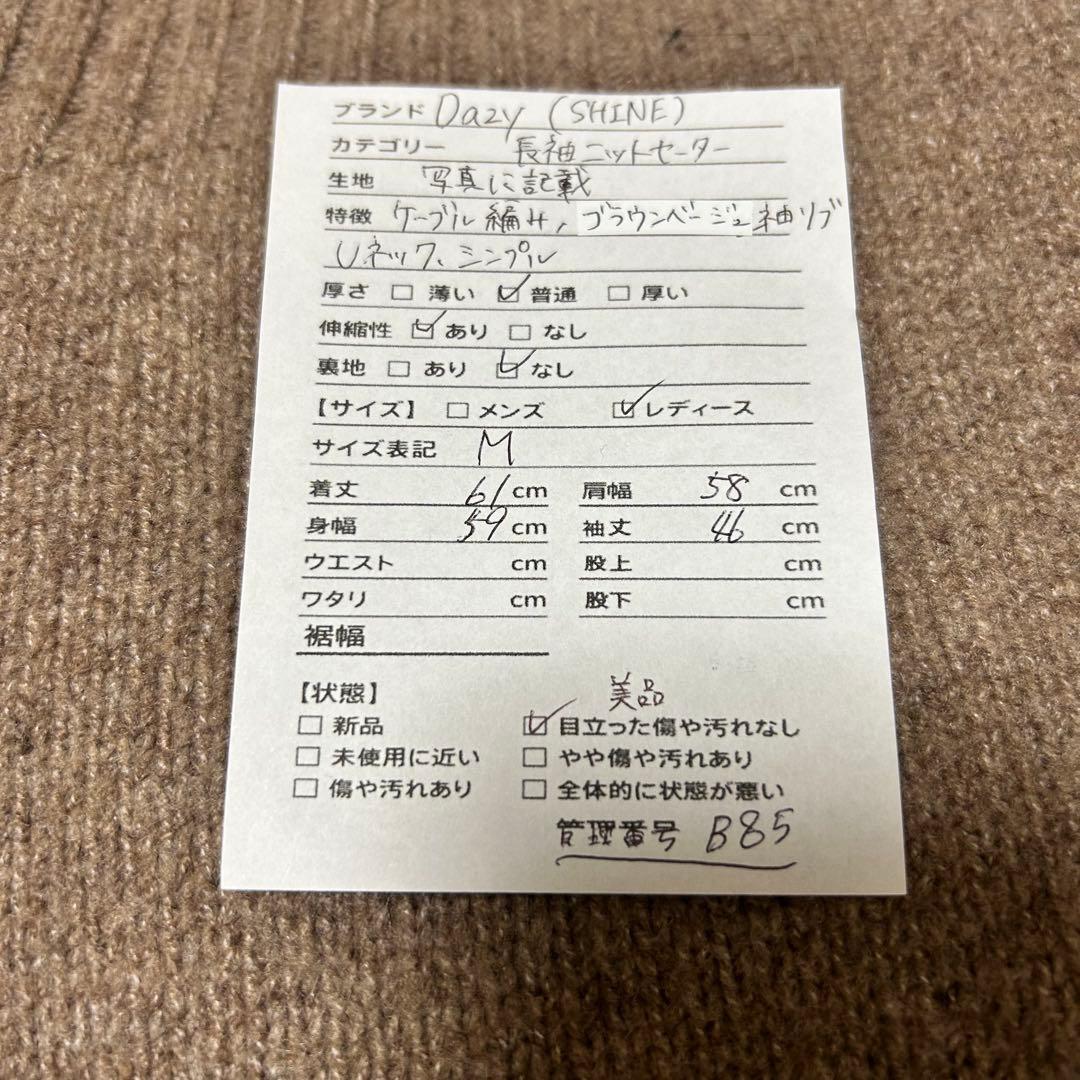 ブランド Dazy (SHINE)
カテゴリー 長袖ニットセーター
生地 写真に記載
特徴 ケーブル編み, ブラウンベージュ 袖リブ
Uネック、シンプル
厚さ ☐ 薄い ☑ 普通 ☐ 厚い
伸縮性 ☑ あり ☐ なし
裏地 ☐ あり ☑ なし
【サイズ】 ☐ メンズ ☑ レディース
サイズ表記 M
着丈 61 cm 肩幅 58 cm
身幅 59 cm 袖丈 46 cm
ウエスト cm 股上 cm
ワタリ cm 股下 cm
裾幅
【状態】 美品
☐ 新品 ☑ 目立った傷や汚れなし
☐ 未使用に近い ☐ やや傷や汚れあり
☐ 傷や汚れあり ☐ 全体的に状態が悪い
管理番号 B85